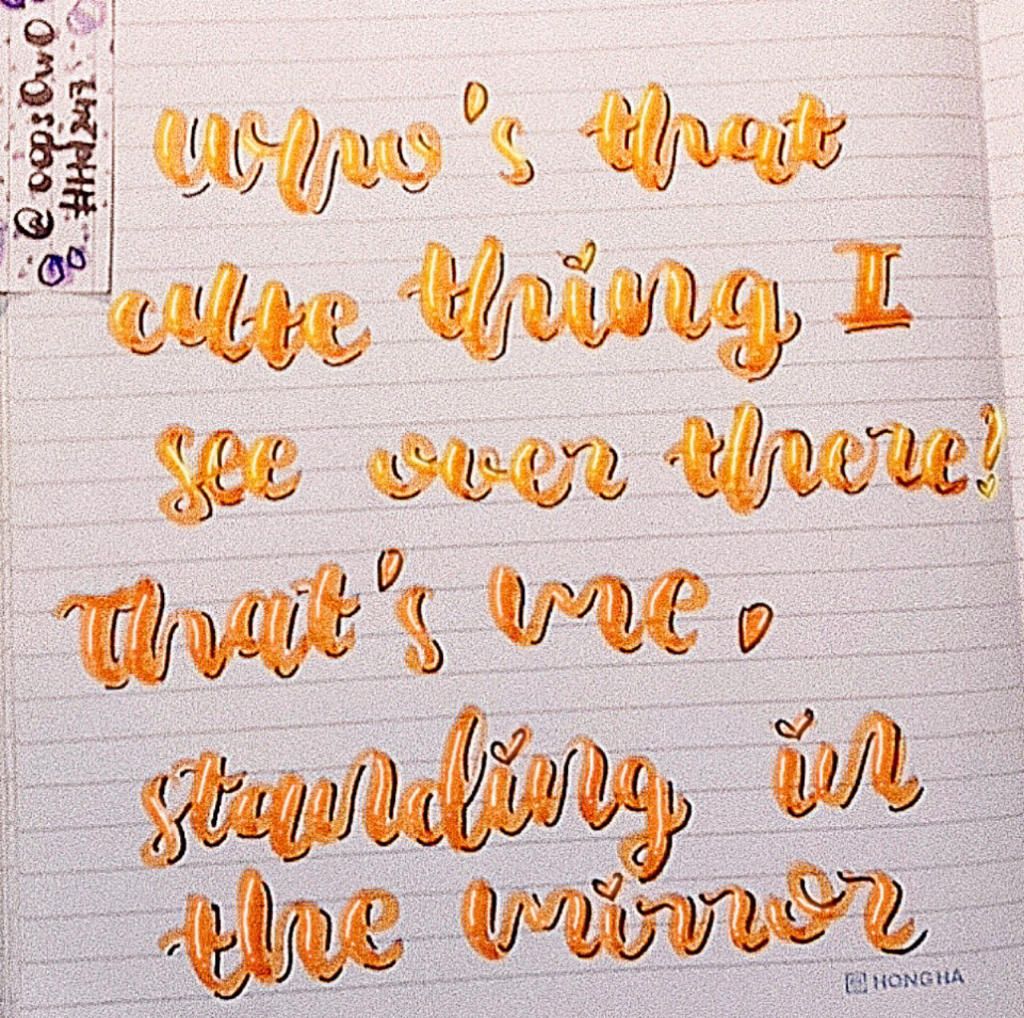 @oopsOwO
who's that
cute thing I
see over there?
That's me.
standing in
the mirror
HONG HA